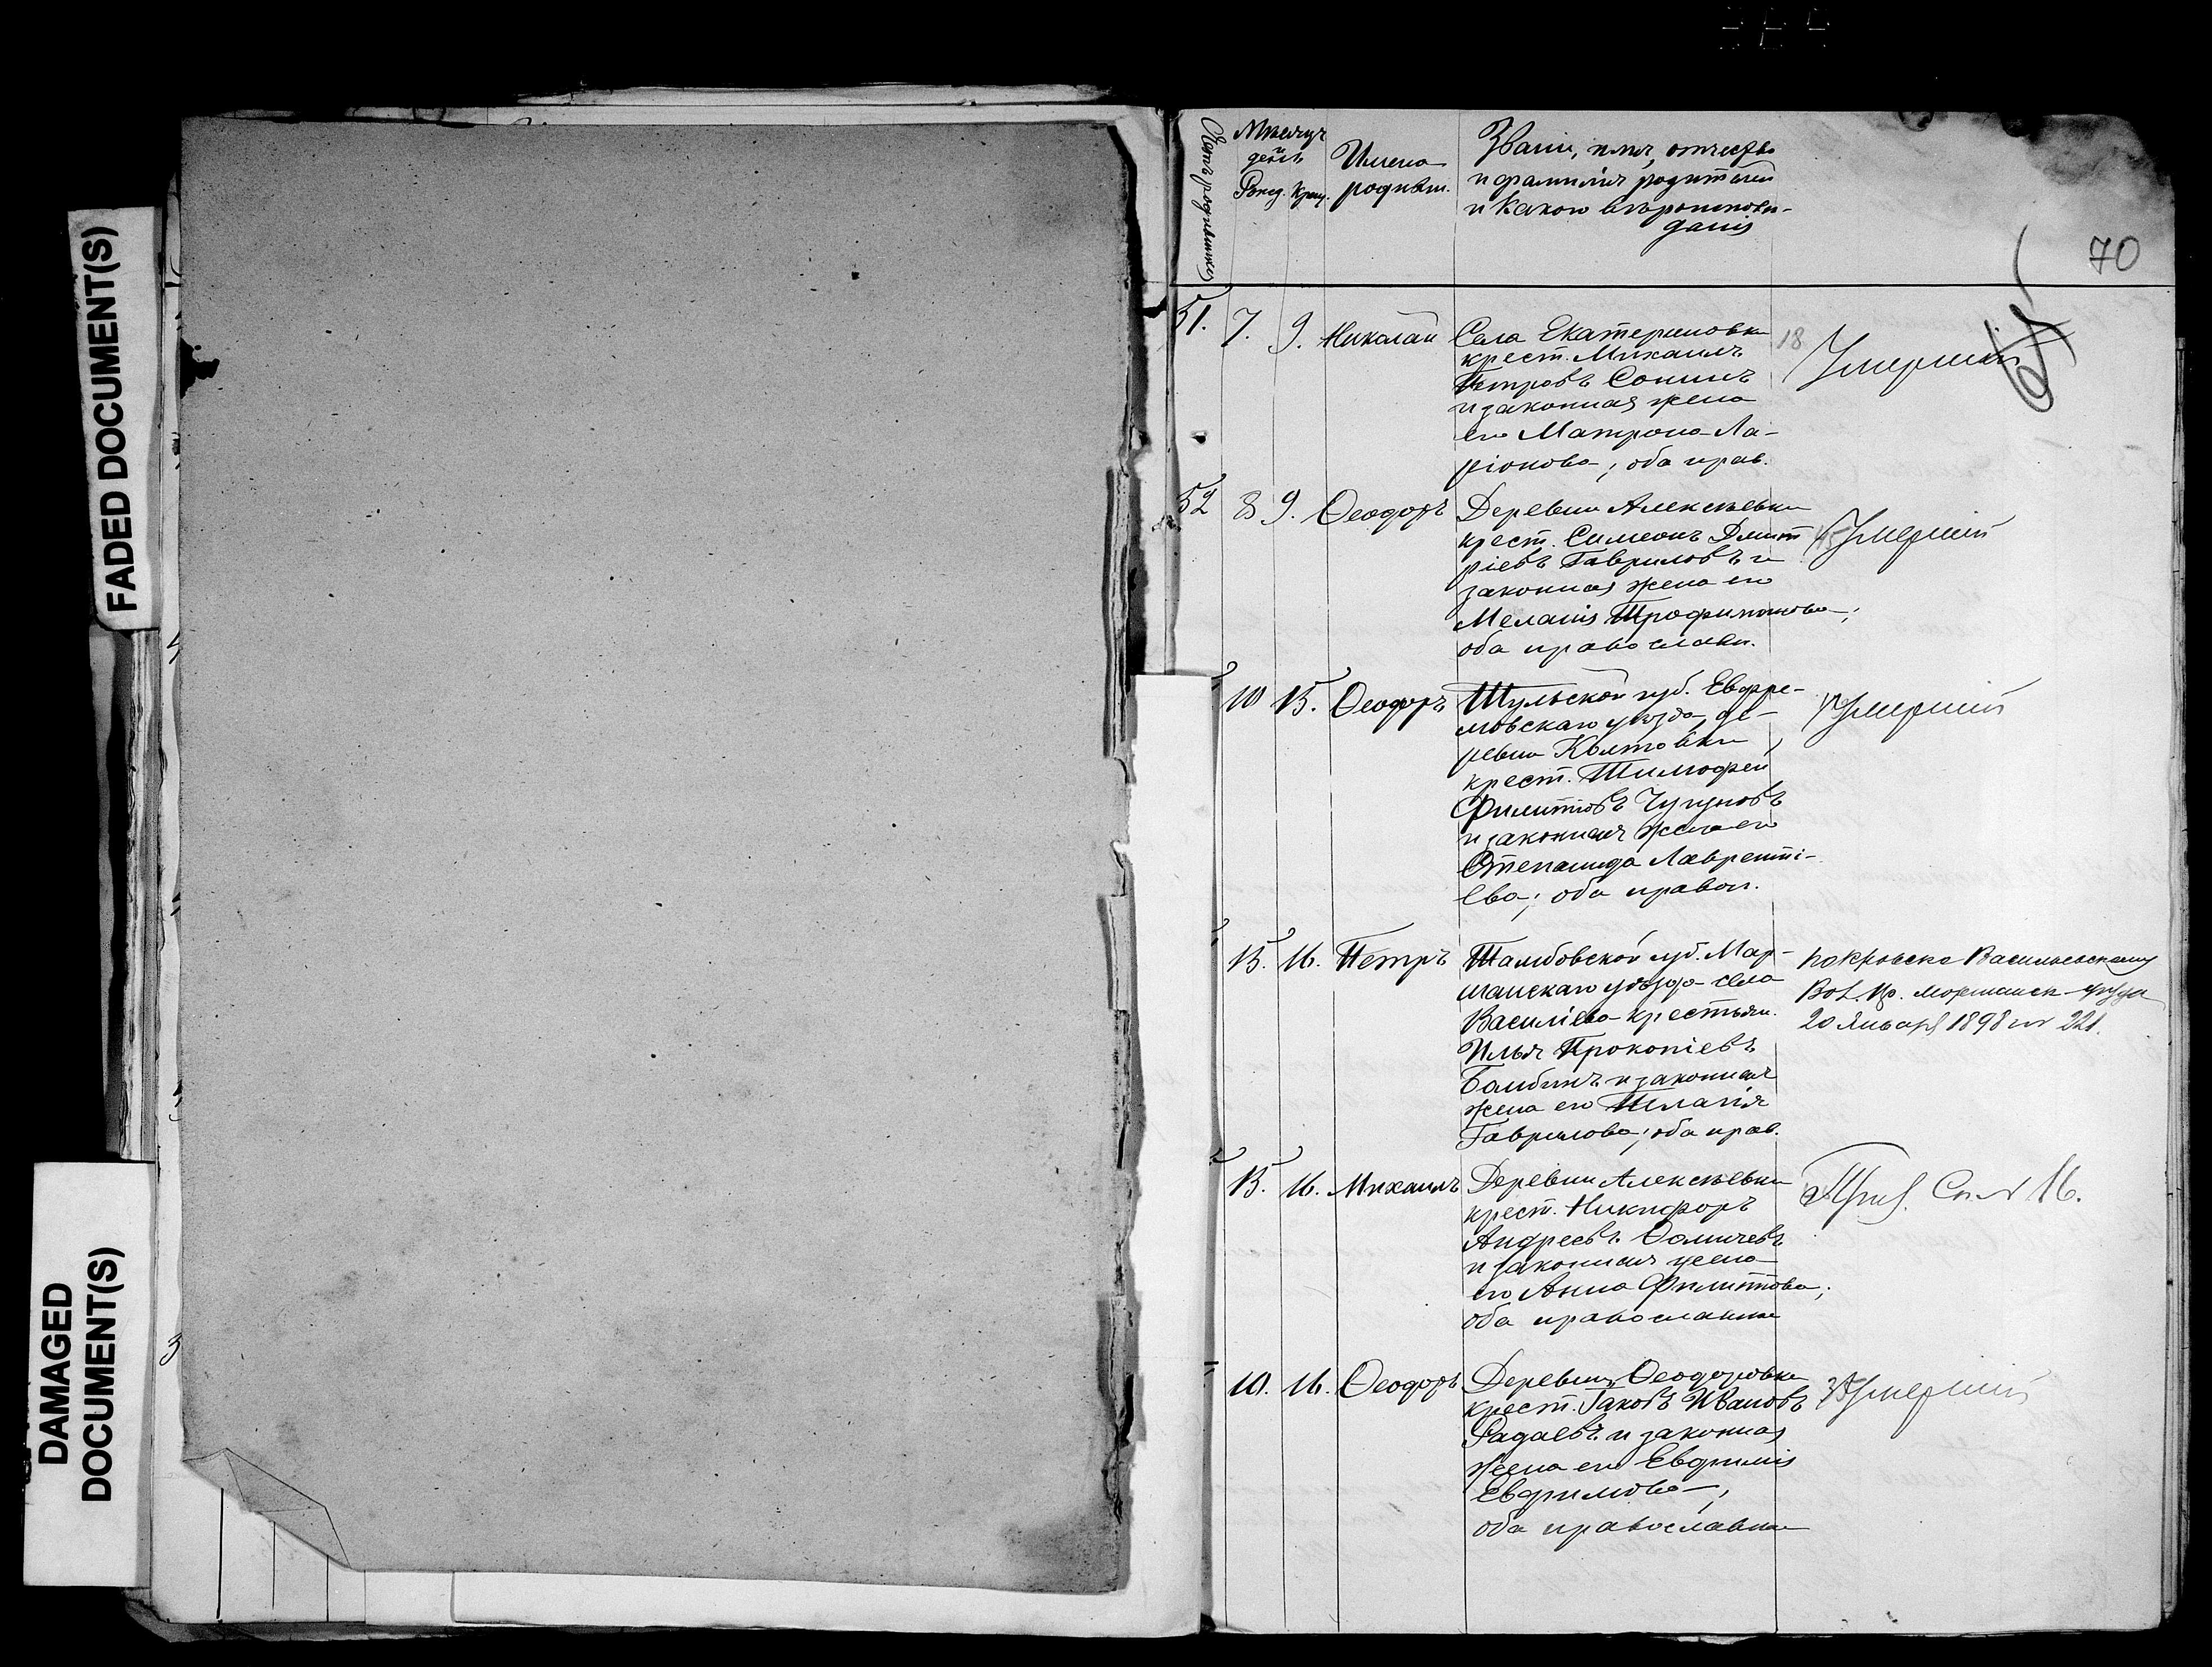 FADED DOCUMENT(S)
DAMAGED
DOCUMENT(S)
3
70
Мѣсяцъ
и
день
Рожд. Крещ.
Имена
родивш.
Званіе, имя, отчество
и фамилія родителей
и какого вѣроисповѣ-
данія
51. 7. 9. Николай
Села Екатериновки
крест. Михаилъ
Петровъ Сонинъ
и законная жена
его Матрона Ла-
ріонова; оба прав.
18
Умершій
52 8 9. Ѳеодоръ
Деревни Алексѣевки
крест. Симеонъ Димит
ріевъ Гавриловъ и
законная жена его
Меланія Трофимова;
оба православн.
Умершій
10 15. Ѳеодоръ
Тульской губ. Ефре-
мовскаго уѣзда, де-
ревни
крест. Тимофей
Филипповъ Чугуновъ
и законная жена его
Степанида Лаврентi-
ева; оба правосл.
Умершій
15. 16. Петръ
Тамбовской губ. Мор-
шанскаго уѣзда села
Василіева крестьян.
Илья Прокопіевъ
и законная
жена его
Гаврилова; оба прав.
Покровско Васильевскому
Вол. Пр. Моршанск уѣзда
20 Января 1898 № 221.
15. 16. Михаилъ
Деревни Алексѣевки
крест. Никифоръ
Андреевъ Ѳомичевъ
и законная жена
его Анна Филиппова;
оба православные
Сп. № 16.
10. 16. Ѳеодоръ
Деревни Ѳеодоровки
крест. Іаковъ Ивановъ
Радаевъ и законная
жена его Евфимія
Евфимова;
оба православные
Умершій